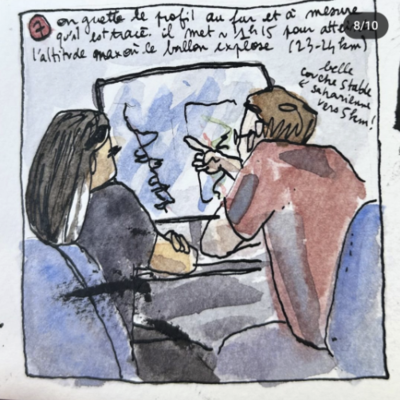 7 on guette le profil au fur et à mesure
qu'il est tracé. il met ~ 1h15 pour
l'altitude max où le ballon explose (23-24 km)
belle
couche stable
saharienne
vers 5 km!
8/10